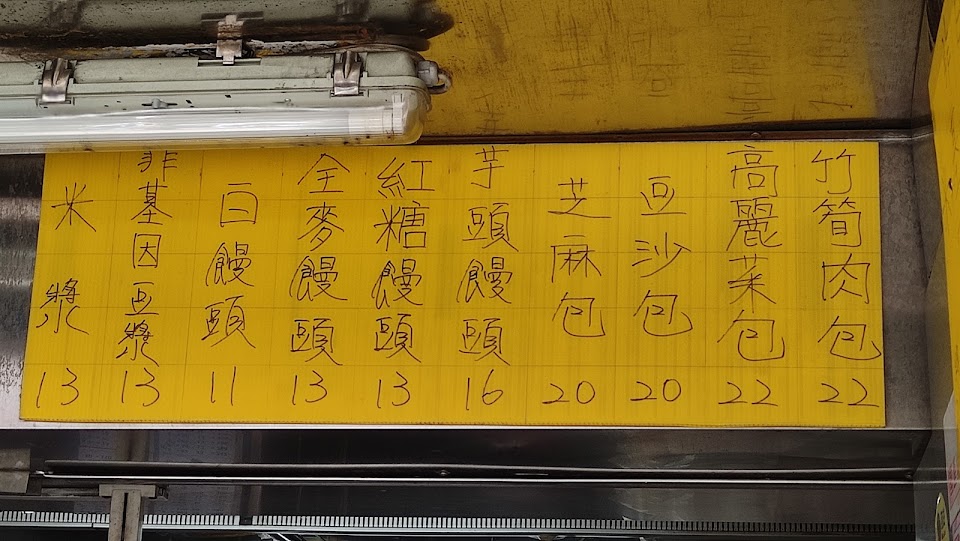 竹筍肉包 22
高麗菜包 22
豆沙包 20
芝麻包 20
芋頭饅頭 16
紅糖饅頭 13
全麥饅頭 13
白饅頭 11
非基因豆漿 13
米漿 13